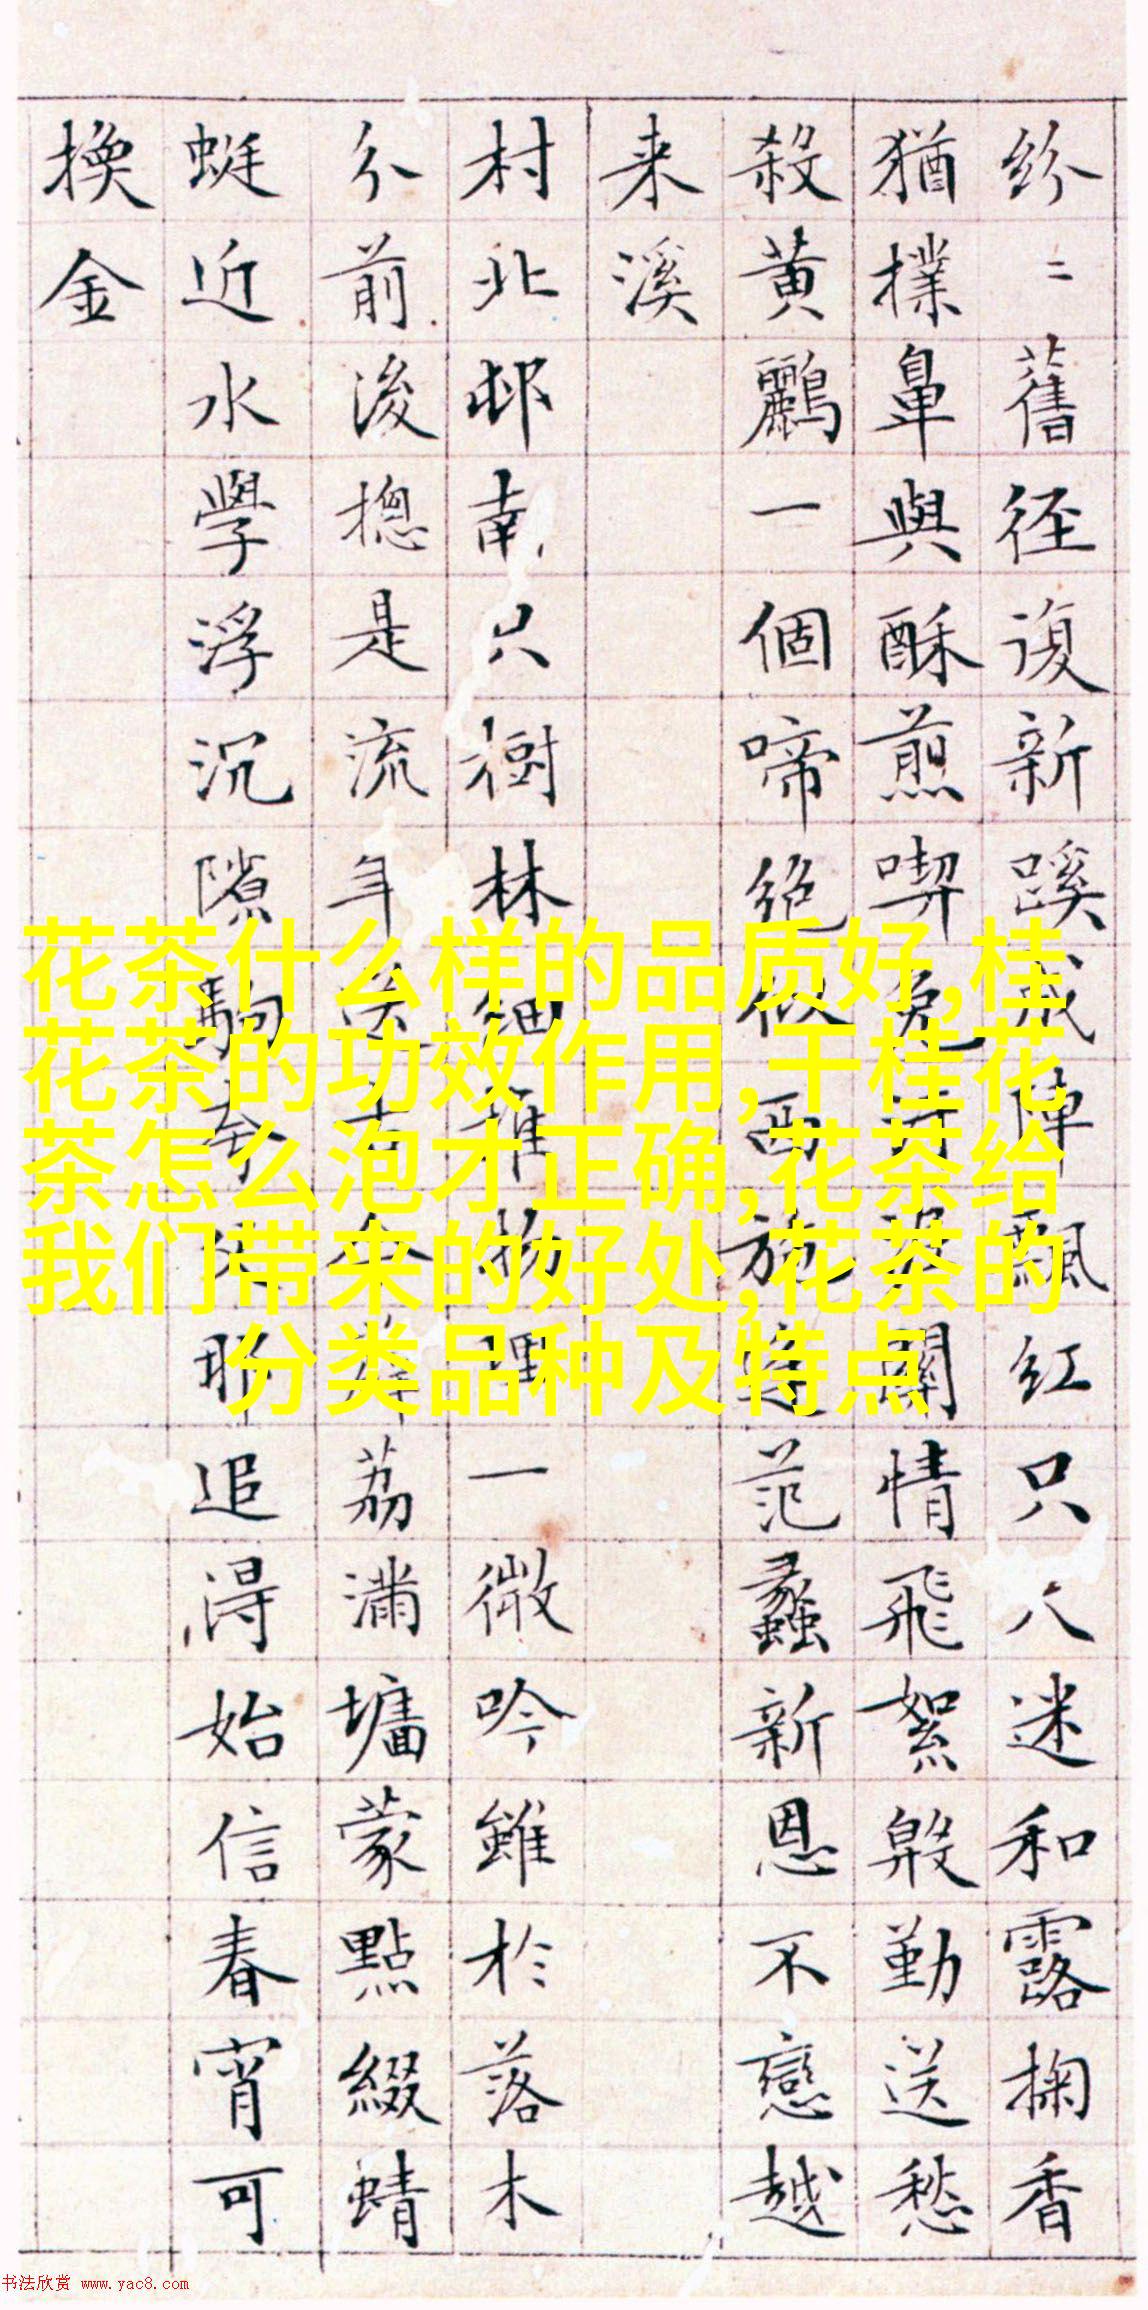 纷〻舊径復新蹊成陣飄红只人迷和露掬香
猶撲鼻與酥煎喫免關情飛絮殷勤送愁
殺黃鸝一個啼絶似西施逢范蠡新恩不戀越
来溪
村北邨南只樹林細推物理一微吟雖於落木
分前後揔是流年荔滿墉蒙點綴蜻
蜓近水學浮沉隙駒追得始信春宵可
換金
花茶什么样的品质好,桂
花茶的功效作用,干桂花
茶怎么泡才正确,花茶给
我们带来的好处,花茶的
分类品种及特点
书法欣赏 www.yac8.com